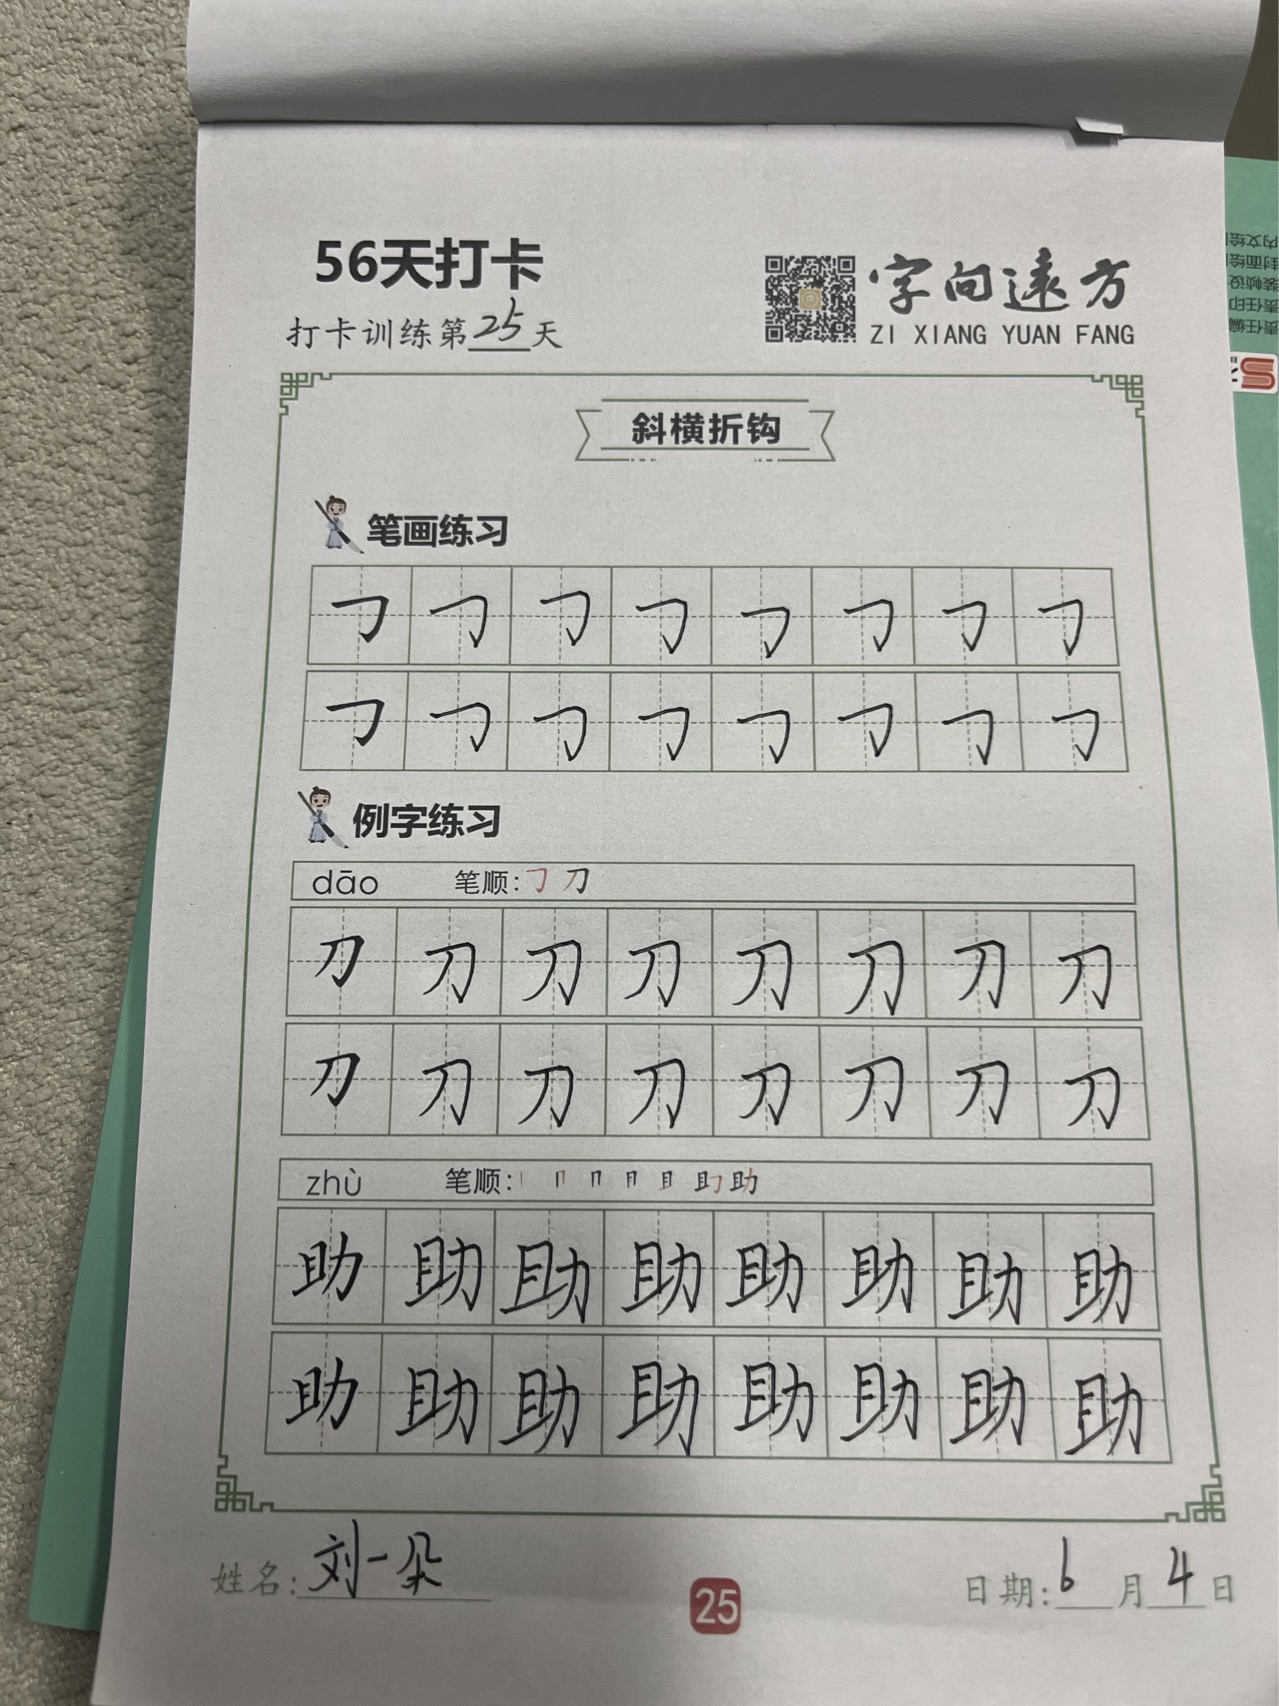 56天打卡
打卡训练第25天
字向远方
ZI XIANG YUAN FANG
斜横折钩
笔画练习
㇆ ㇆ ㇆ ㇆ ㇆ ㇆ ㇆ ㇆
㇆ ㇆ ㇆ ㇆ ㇆ ㇆ ㇆ ㇆
例字练习
dāo 笔顺:㇆ 刀
刀 刀 刀 刀 刀 刀 刀 刀
刀 刀 刀 刀 刀 刀 刀 刀
zhù 笔顺: 助
助 助 助 助 助 助 助 助
助 助 助 助 助 助 助 助
姓名:刘一朵
25
日期:6月4日
内文绘
封面绘
装帧设
责任印
责任编